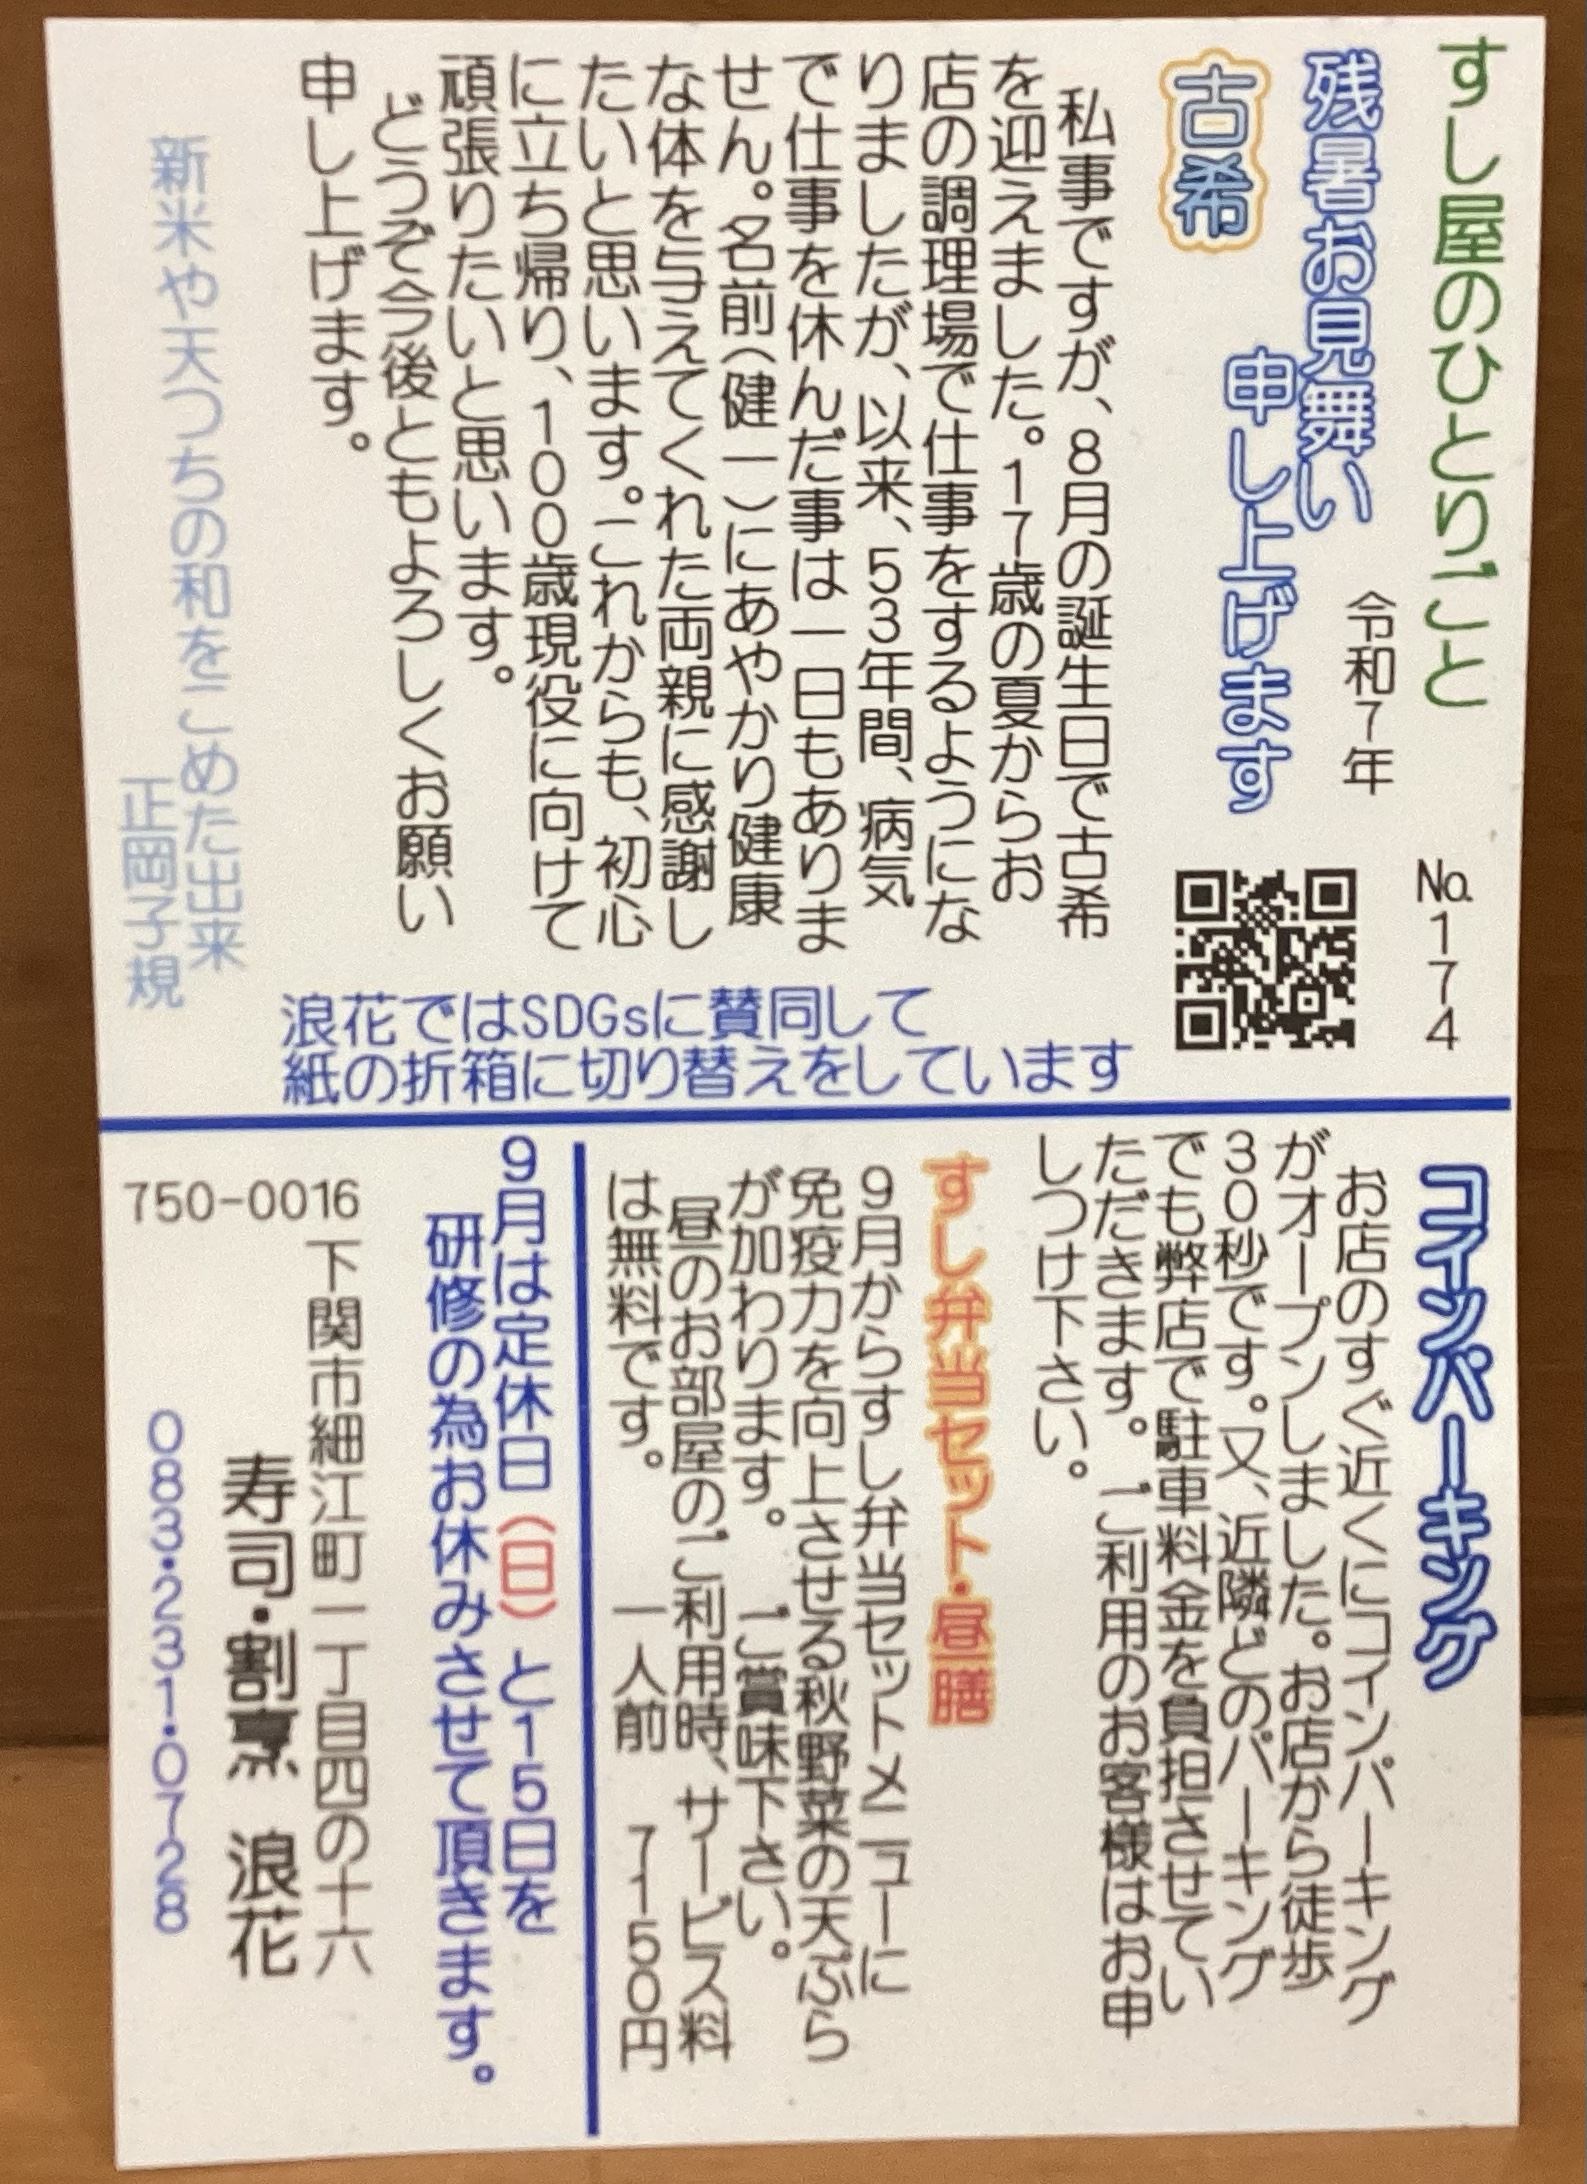 すし屋のひとりごと
No.174
残暑お見舞い
申し上げます
令和7年
古希
私事ですが、8月の誕生日で古希
を迎えました。17歳の夏からお
店の調理場で仕事をするようにな
りましたが、以来、53年間、病気
で仕事を休んだ事は一日もありま
せん。名前(健一)にあやかり健康
な体を与えてくれた両親に感謝し
たいと思います。これからも、初心
に立ち帰り、100歳現役に向けて
頑張りたいと思います。
どうぞ今後ともよろしくお願い
申し上げます。
新米や天つちの和をこめた出来
正岡子規
浪花ではSDGsに賛同して
紙の折箱に切り替えをしています
コインパーキング
お店のすぐ近くにコインパーキング
がオープンしました。お店から徒歩
30秒です。又、近隣どのパーキング
でも弊店で駐車料金を負担させてい
ただきます。ご利用のお客様はお申
しつけ下さい。
すし弁当セット・昼膳
9月からすし弁当セットメニューに
免疫力を向上させる秋野菜の天ぷら
が加わります。ご賞味下さい。
昼のお部屋のご利用時、サービス料
は無料です。 一人前 7150円
9月は定休日(日)と15日を
研修の為お休みさせて頂きます。
750-0016
下関市細江町一丁目四の十六
寿司・割烹 浪花
083・231・0728